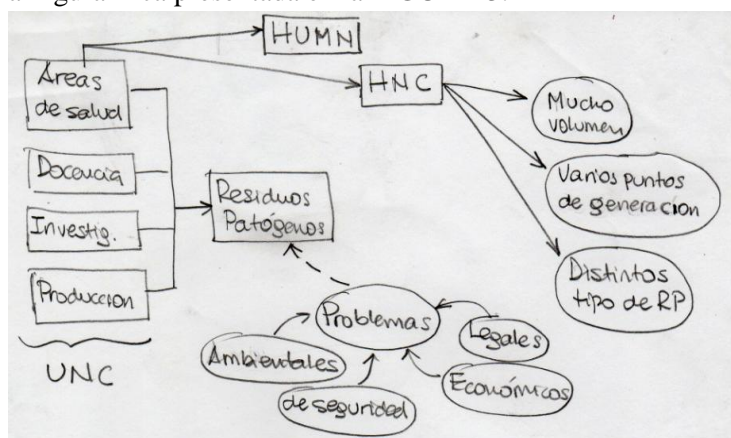 HUMN
HNC
Áreas
de salud
Docencia
Investig.
Producción
UNC
Residuos
Patógenos
Mucho
volumen
Varios puntos
de generación
Distintos
tipo de RP
Problemas
Ambientales
de seguridad
Económicos
Legales